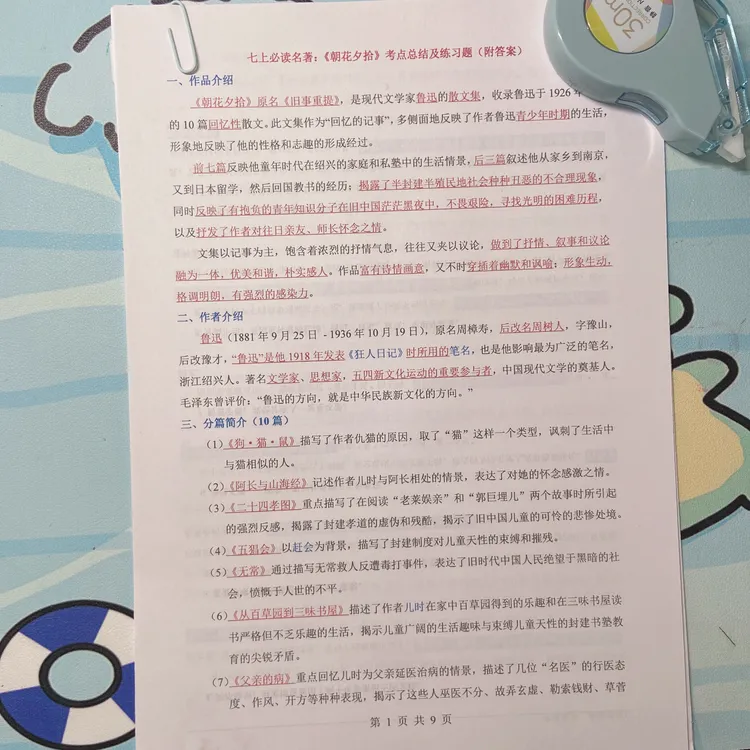 七上必读名著：《朝花夕拾》考点总结及练习题（附答案）
一、作品介绍
《朝花夕拾》原名《旧事重提》，是现代文学家鲁迅的散文集，收录鲁迅于 1926 年
的 10 篇回忆性散文。此文集作为“回忆的记事”，多侧面地反映了作者鲁迅青少年时期的生活，
形象地反映了他的性格和志趣的形成经过。
前七篇反映他童年时代在绍兴的家庭和私塾中的生活情景，后三篇叙述他从家乡到南京，
又到日本留学，然后回国教书的经历；揭露了半封建半殖民地社会种种丑恶的不合理现象，
同时反映了有抱负的青年知识分子在旧中国茫茫黑夜中，不畏艰险，寻找光明的困难历程，
以及抒发了作者对往日亲友、师长怀念之情。
文集以记事为主，饱含着浓烈的抒情气息，往往又夹以议论，做到了抒情、叙事和议论
融为一体，优美和谐，朴实感人。作品富有诗情画意，又不时穿插着幽默和讽喻；形象生动，
格调明朗，有强烈的感染力。
二、作者介绍
鲁迅（1881 年 9 月 25 日 - 1936 年 10 月 19 日），原名周樟寿，后改名周树人，字豫山，
后改豫才，“鲁迅”是他 1918 年发表《狂人日记》时所用的笔名，也是他影响最为广泛的笔名，
浙江绍兴人。著名文学家、思想家，五四新文化运动的重要参与者，中国现代文学的奠基人。
毛泽东曾评价：“鲁迅的方向，就是中华民族新文化的方向。”
三、分篇简介（10 篇）
（1）《狗·猫·鼠》描写了作者仇猫的原因，取了“猫”这样一个类型，讽刺了生活中
与猫相似的人。
（2）《阿长与山海经》记述作者儿时与阿长相处的情景，表达了对她的怀念感激之情。
（3）《二十四孝图》重点描写了在阅读“老莱娱亲”和“郭巨埋儿”两个故事时所引起
的强烈反感，揭露了封建孝道的虚伪和残酷，揭示了旧中国儿童的可怜的悲惨处境。
（4）《五猖会》以赶会为背景，描写了封建制度对儿童天性的束缚和摧残。
（5）《无常》通过描写无常救人反遭毒打事件，表达了旧时代中国人民绝望于黑暗的社
会，愤慨于人世的不平。
（6）《从百草园到三味书屋》描述了作者儿时在家中百草园得到的乐趣和在三味书屋读
书严格但不乏乐趣的生活，揭示儿童广阔的生活趣味与束缚儿童天性的封建书塾教
育的尖锐矛盾。
（7）《父亲的病》重点回忆儿时为父亲延医治病的情景，描述了几位“名医”的行医态
度、作风、开方等种种表现，揭示了这些人巫医不分、故弄玄虚、勒索钱财、草菅
第 1 页 共 9 页
30m